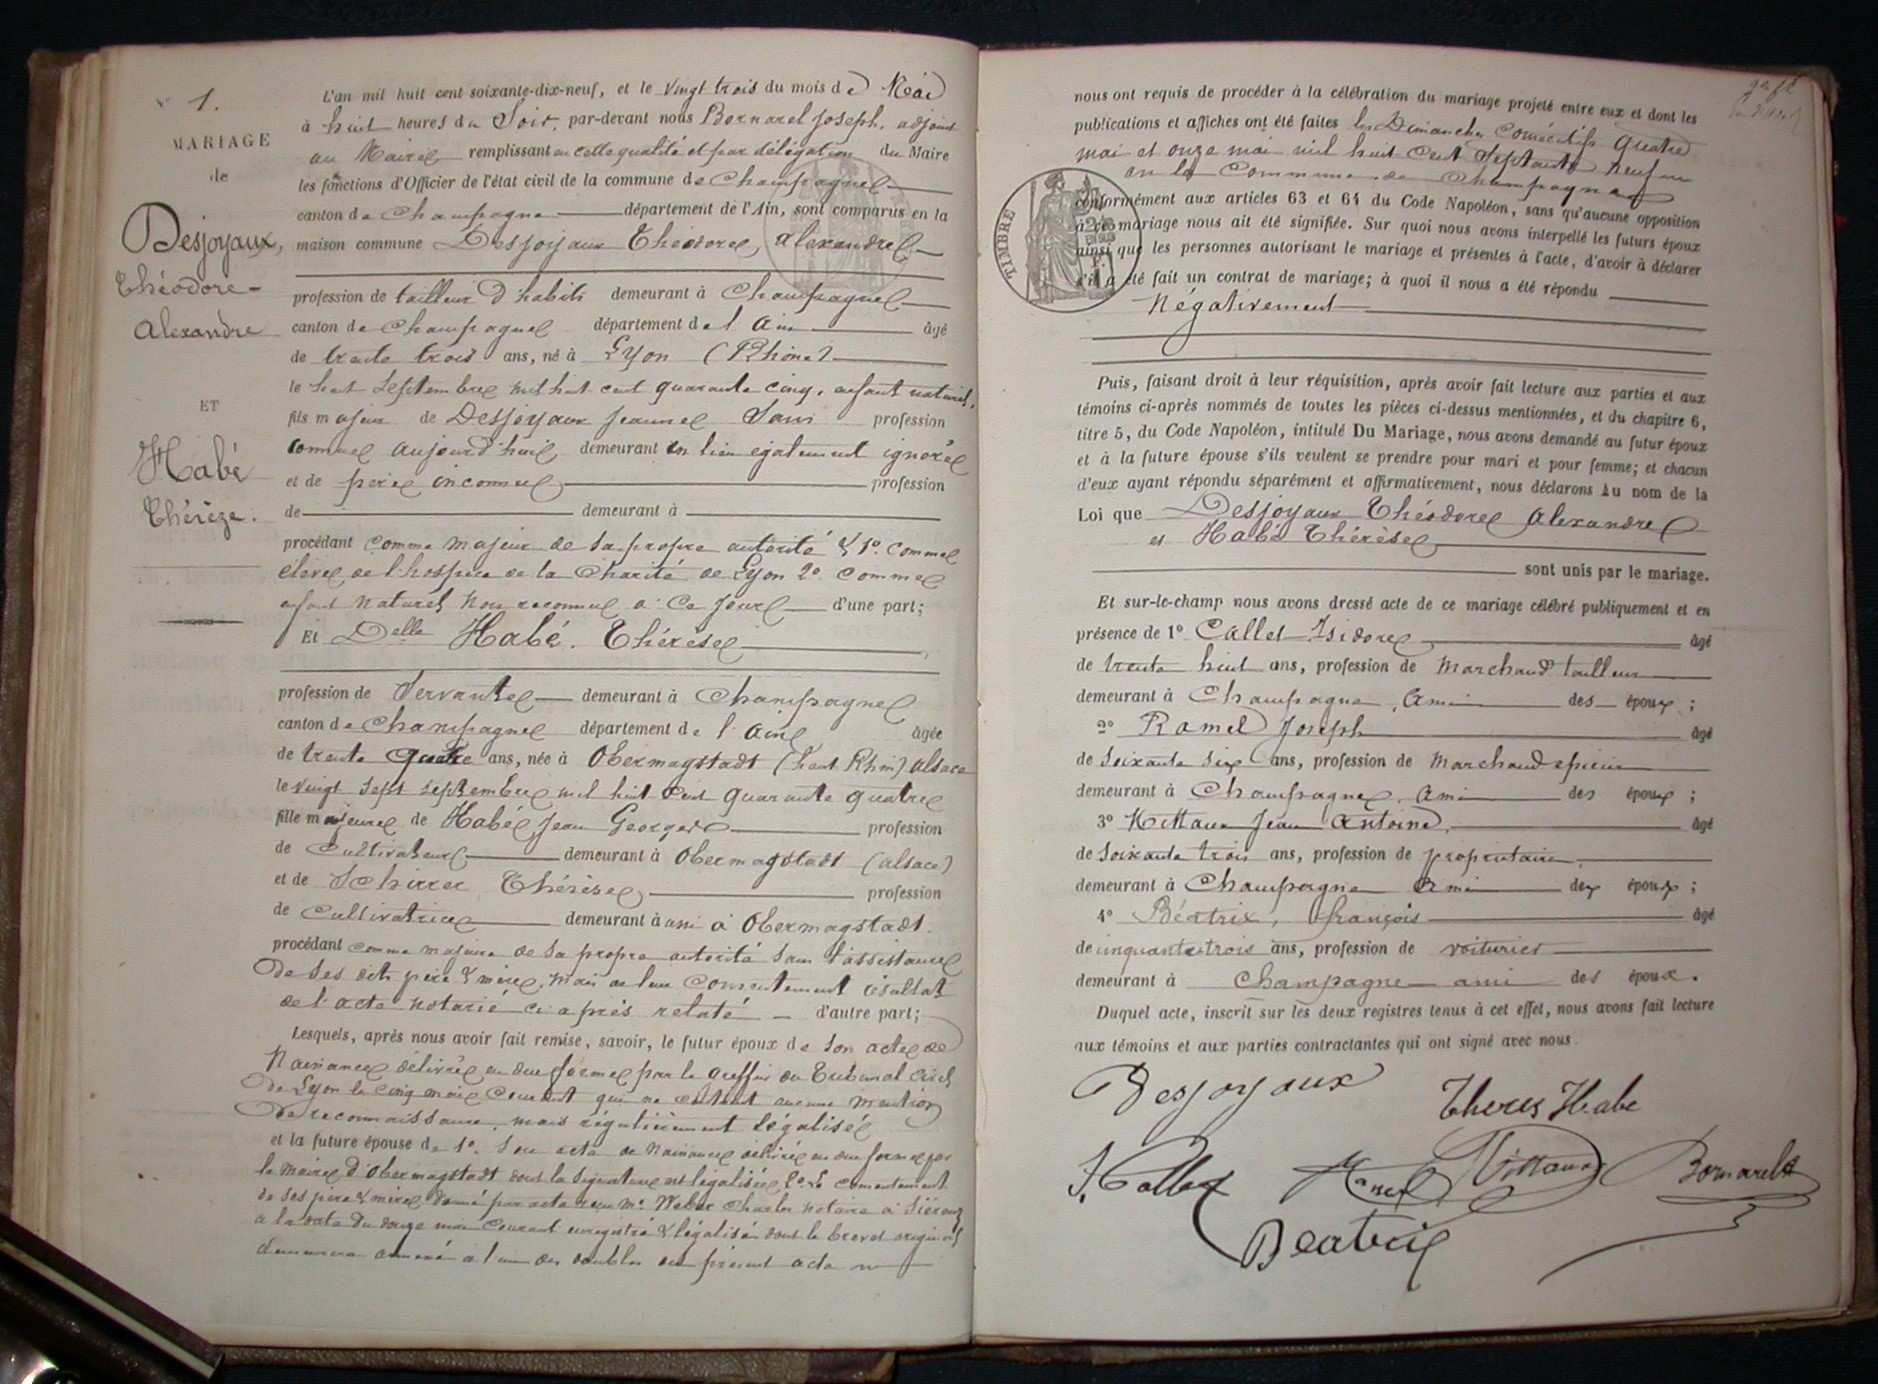 N° 1.
MARIAGE
de
Desjoyaux,
Théodore-
Alexandre
ET
Habé
Thérèze.
L'an mil huit cent soixante-dix-neuf, et le vingt trois du mois de Mai
à huit heures du Soir, par-devant nous Bornarel Joseph, adjoint
au Maire remplissant en cette qualité et par délégation du Maire
les fonctions d'Officier de l'état civil de la commune de Champagne
canton de Champagne département de l'Ain, sont comparus en la
maison commune Desjoyaux Théodore, Alexandre
profession de tailleur d'habits demeurant à Champagne
canton de Champagne département de l'Ain âgé
de trente trois ans, né à Lyon (Rhône)
le huit Septembre mil huit cent quarante cinq, enfant naturel,
fils majeur de Desjoyaux Jeanne Sans profession
connue aujourd'hui demeurant en lieu également ignoré
et de père inconnu profession
de demeurant à
procédant comme majeur de sa propre autorité & 1° comme
élève de l'hospice de la Charité de Lyon 2° comme
enfant naturel non reconnu à ce jour d'une part;
Et Delle Habé. Thérèse
profession de Servante demeurant à Champagne
canton de Champagne département de l'Ain âgée
de trente quatre ans, née à Obermagstadt (haut Rhin) alsace
le vingt sept septembre mil huit cent quarante quatre
fille majeure de Habé Jean Georges profession
de Cultivateur demeurant à Obermagstadt (alsace)
et de Schirrer Thérèse profession
de Cultivatrice demeurant à aussi à Obermagstadt.
procédant comme majeure de sa propre autorité sans l'assistance
de ses dits père & mère, mais de leur consentement résultat
de l'acte notarié ci après relaté d'autre part;
Lesquels, après nous avoir fait remise, savoir, le futur époux de son acte de
Naissance délivrée en due forme par le Greffier du Tribunal Civil
de Lyon le cinq mai courant qui ne contient aucune mention
de reconnaissance, mais régulièrement légalisée
et la future épouse de 1° Son acte de Naissance délivrée en due forme par
le maire d'Obermagstadt dont la signature est légalisée 2° Le consentement
de ses père & mère donné par acte reçu Me Weber Charles notaire à
à la date du douze mai courant enregistré & légalisé dont le brevet original
demeurera annexé à l'un des doubles du présent acte
nous ont requis de procéder à la célébration du mariage projeté entre eux et dont les
publications et affiches ont été faites les Dimanches consécutifs quatre
mai et onze mai mil huit cent septante neuf
en la Commune de Champagne
TIMBRE
conformément aux articles 63 et 64 du Code Napoléon, sans qu'aucune opposition
à ce mariage nous ait été signifiée. Sur quoi nous avons interpellé les futurs époux
ainsi que les personnes autorisant le mariage et présentes à l'acte, d'avoir à déclarer
s'il a été fait un contrat de mariage; à quoi il nous a été répondu
Négativement
Puis, faisant droit à leur réquisition, après avoir fait lecture aux parties et aux
témoins ci-après nommés de toutes les pièces ci-dessus mentionnées, et du chapitre 6,
titre 5, du Code Napoléon, intitulé Du Mariage, nous avons demandé au futur époux
et à la future épouse s'ils veulent se prendre pour mari et pour femme; et chacun
d'eux ayant répondu séparément et affirmativement, nous déclarons Au nom de la
Loi que Desjoyaux Théodore Alexandre
et Habé Thérèse
sont unis par le mariage.
Et sur-le-champ nous avons dressé acte de ce mariage célébré publiquement et en
présence de 1° Callet Isidore âgé
de trente huit ans, profession de Marchand tailleur
demeurant à Champagne, ami des époux;
2° Ramel Joseph âgé
de soixante six ans, profession de Marchand epicier
demeurant à Champagne, ami des époux;
3° Mittaux Jean Antoine, âgé
de soixante trois ans, profession de propriétaire
demeurant à Champagne ami des époux;
4° Béatrix, françois âgé
de cinquante trois ans, profession de voiturier
demeurant à Champagne ami des époux.
Duquel acte, inscrit sur les deux registres tenus à cet effet, nous avons fait lecture
aux témoins et aux parties contractantes qui ont signé avec nous.
Desjoyaux
Theres Habe
I. Callet Ramel Mittaux Bornarel
Beatrix